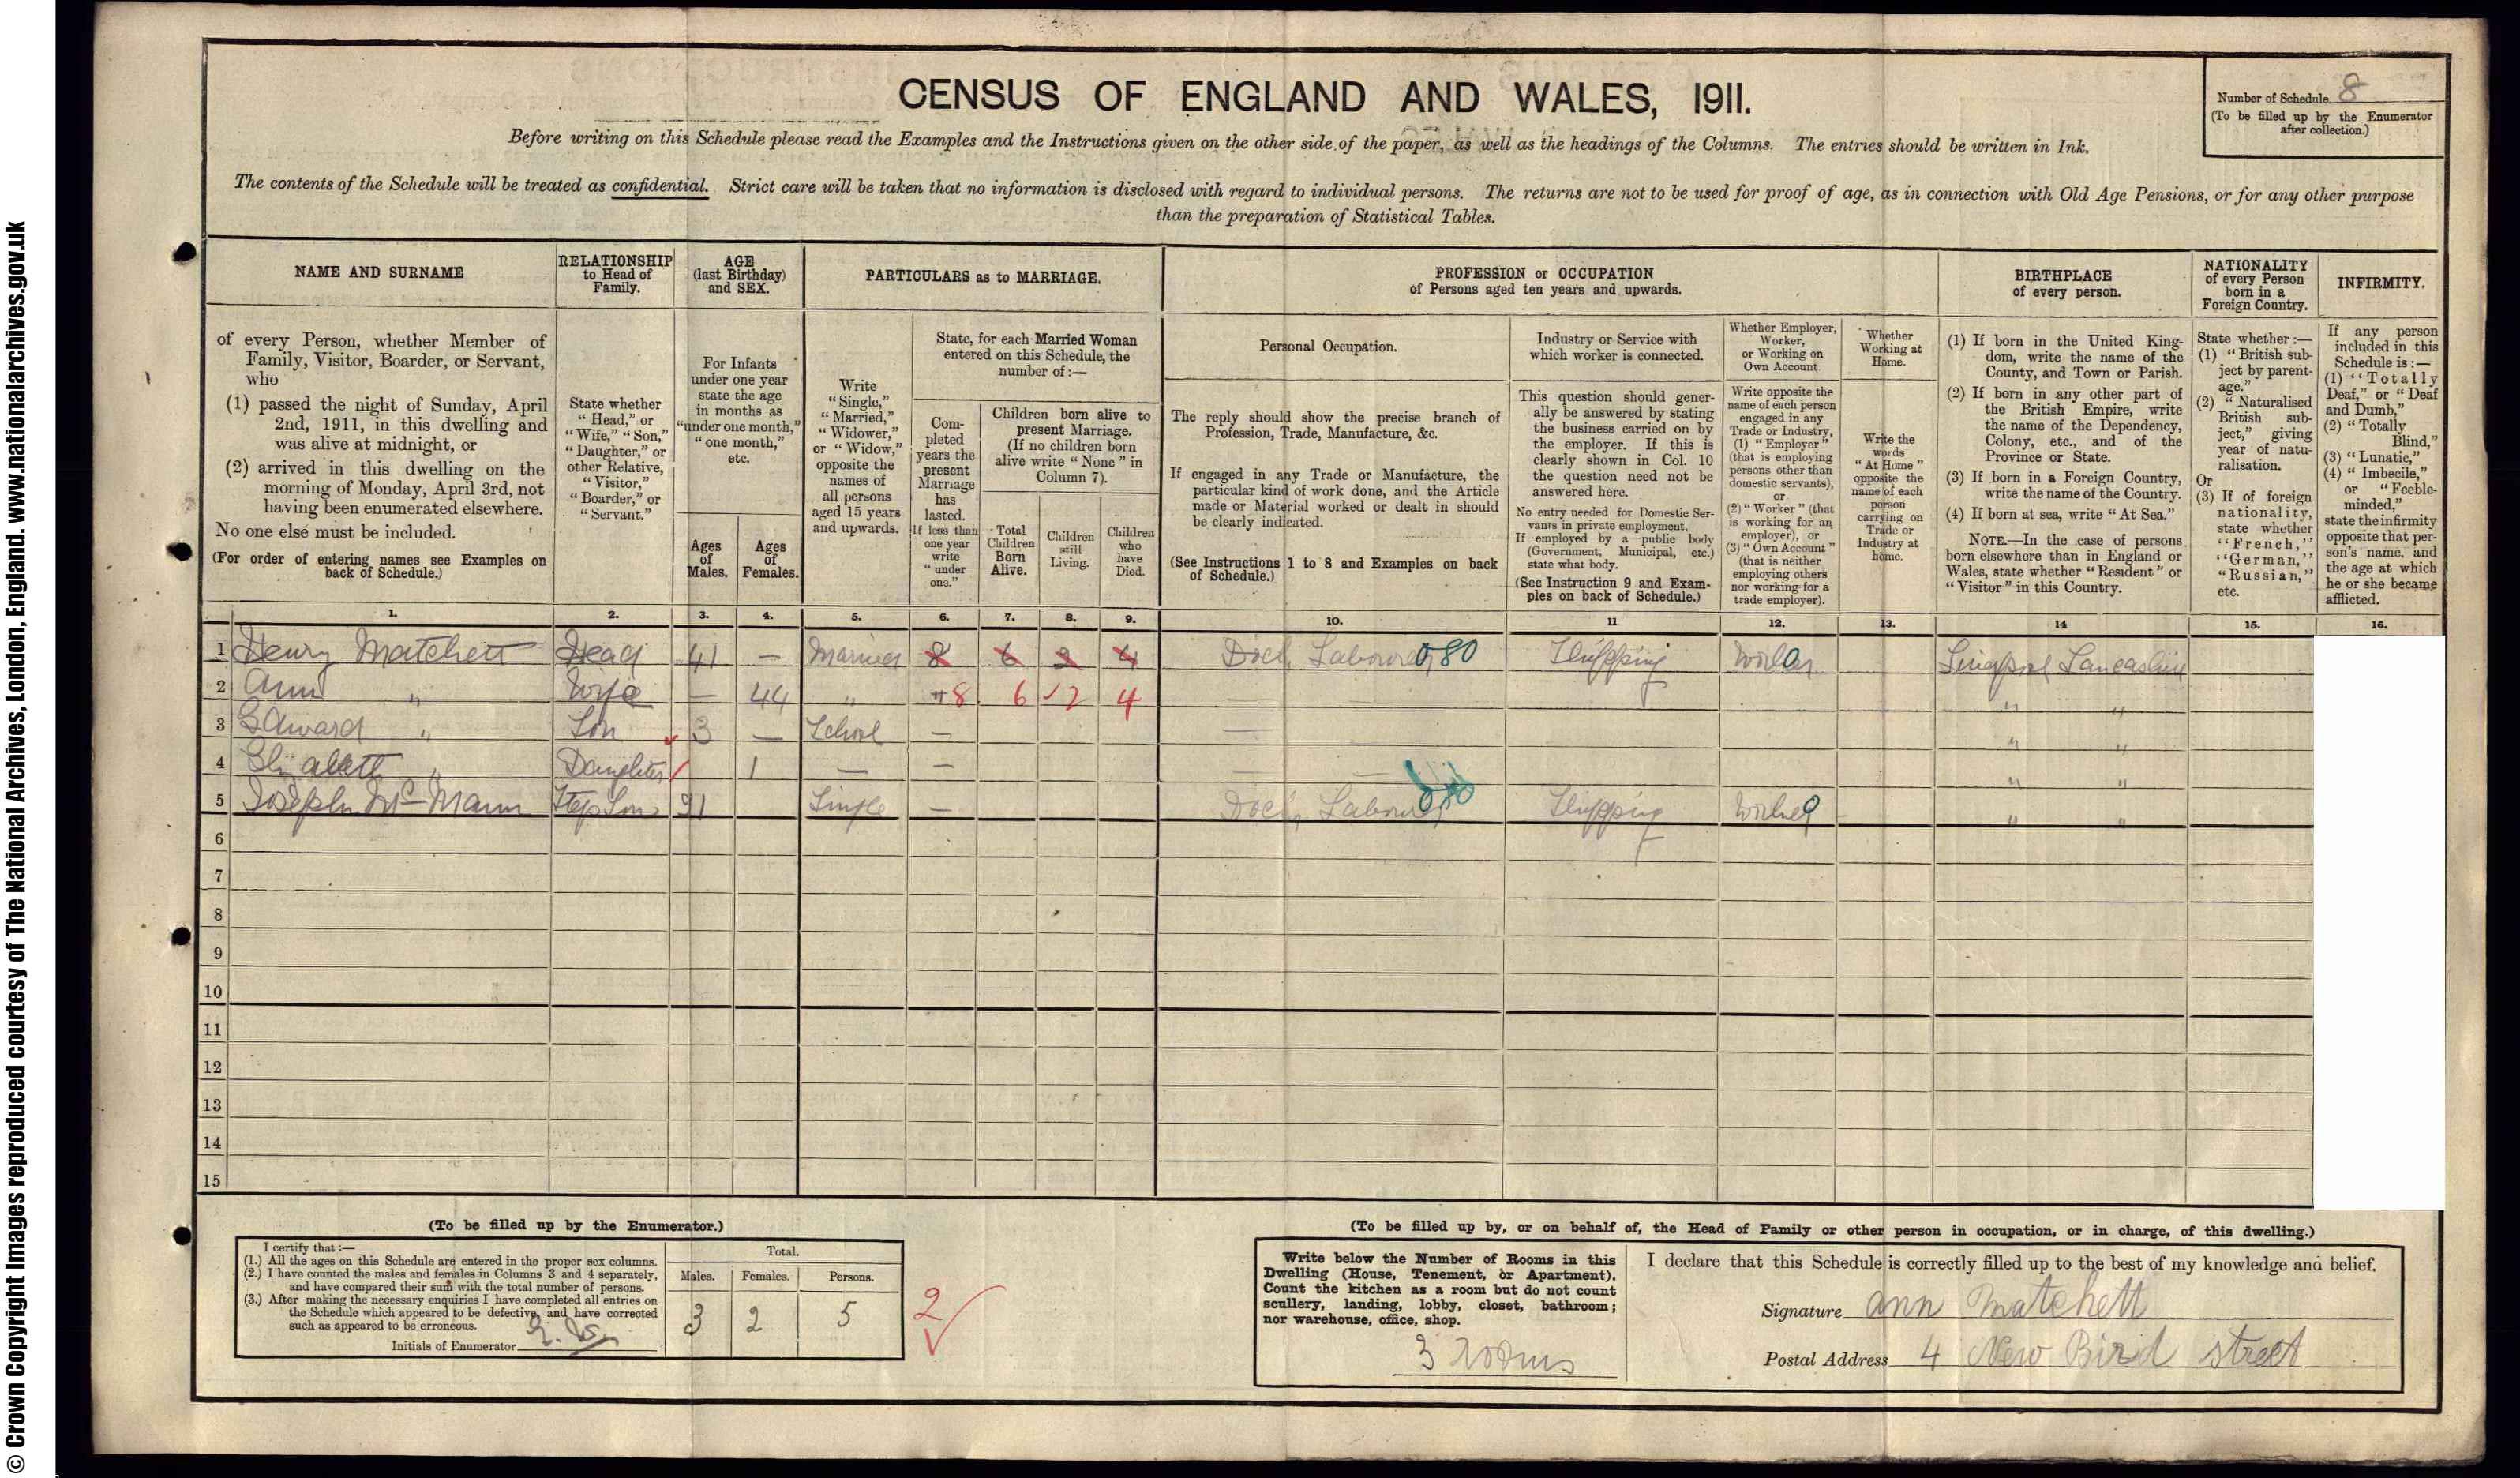 © Crown Copyright Images reproduced courtesy of The National Archives, London, England. www.nationalarchives.gov.uk
CENSUS OF ENGLAND AND WALES, 1911.
Number of Schedule 8
(To be filled up by the Enumerator
after collection.)
Before writing on this Schedule please read the Examples and the Instructions given on the other side of the paper, as well as the headings of the Columns. The entries should be written in Ink.
The contents of the Schedule will be treated as confidential. Strict care will be taken that no information is disclosed with regard to individual persons. The returns are not to be used for proof of age, as in connection with Old Age Pensions, or for any other purpose
than the preparation of Statistical Tables.
NAME AND SURNAME
of every Person, whether Member of
Family, Visitor, Boarder, or Servant,
who
(1) passed the night of Sunday, April
2nd, 1911, in this dwelling and
was alive at midnight, or
(2) arrived in this dwelling on the
morning of Monday, April 3rd, not
having been enumerated elsewhere.
No one else must be included.
(For order of entering names see Examples on
back of Schedule.)
RELATIONSHIP
to Head of
Family.
State whether
"Head," or
"Wife," "Son,"
"Daughter," or
other Relative,
"Visitor,"
"Boarder," or
"Servant."
AGE
(last Birthday)
and SEX.
For Infants
under one year
state the age
in months as
"under one month,"
"one month,"
etc.
Ages
of
Males.
Ages
of
Females.
PARTICULARS as to MARRIAGE.
Write
"Single,"
"Married,"
"Widower,"
or "Widow,"
opposite the
names of
all persons
aged 15 years
and upwards.
State, for each Married Woman
entered on this Schedule, the
number of:—
Com-
pleted
years the
present
Marriage
has
lasted.
If less than
one year
write
"under
one."
Children born alive to
present Marriage.
(If no children born
alive write "None" in
Column 7).
Total
Children
Born
Alive.
Children
still
Living.
Children
who
have
Died.
PROFESSION or OCCUPATION
of Persons aged ten years and upwards.
Personal Occupation.
The reply should show the precise branch of
Profession, Trade, Manufacture, &c.
If engaged in any Trade or Manufacture, the
particular kind of work done, and the Article
made or Material worked or dealt in should
be clearly indicated.
(See Instructions 1 to 8 and Examples on back
of Schedule.)
Industry or Service with
which worker is connected.
This question should gener-
ally be answered by stating
the business carried on by
the employer. If this is
clearly shown in Col. 10
the question need not be
answered here.
No entry needed for Domestic Ser-
vants in private employment.
If employed by a public body
(Government, Municipal, etc.)
state what body.
(See Instruction 9 and Exam-
ples on back of Schedule.)
Whether Employer,
Worker,
or Working on
Own Account
Write opposite the
name of each person
engaged in any
Trade or Industry,
(1) "Employer"
(that is employing
persons other than
domestic servants),
or
(2) "Worker" (that
is working for an
employer), or
(3) "Own Account"
(that is neither
employing others
nor working for a
trade employer).
Whether
Working at
Home.
Write the
words
"At Home"
opposite the
name of each
person
carrying on
Trade or
Industry at
home.
BIRTHPLACE
of every person.
(1) If born in the United King-
dom, write the name of the
County, and Town or Parish.
(2) If born in any other part of
the British Empire, write
the name of the Dependency,
Colony, etc., and of the
Province or State.
(3) If born in a Foreign Country,
write the name of the Country.
(4) If born at sea, write "At Sea."
NOTE.—In the case of persons
born elsewhere than in England or
Wales, state whether "Resident" or
"Visitor" in this Country.
NATIONALITY
of every Person
born in a
Foreign Country.
State whether:—
(1) "British sub-
ject by parent-
age."
(2) "Naturalised
British sub-
ject," giving
year of natu-
ralisation.
Or
(3) If of foreign
nationality,
state whether
"French,"
"German,"
"Russian,"
etc.
INFIRMITY.
If any person
included in this
Schedule is:—
(1) "Totally
Deaf," or "Deaf
and Dumb,"
(2) "Totally
Blind,"
(3) "Lunatic,"
(4) "Imbecile,"
or "Feeble-
minded,"
state the infirmity
opposite that per-
son's name, and
the age at which
he or she became
afflicted.
1. 2. 3. 4. 5. 6. 7. 8. 9. 10. 11 12. 13. 14 15. 16.
1 Henry Matchett Head 41 — Married 8 6 2 4 Dock Labourer 080 Shipping Worker Liverpool Lancashire
2 Ann " Wife — 44 " 8 6 2 4 — " "
3 Edward " Son 3 — School — — " "
4 Elizabeth " Daughter 1 — — — — " "
5 Joseph Mc Mann Step Son 21 Single — Dock Labourer Shipping Worker " "
6
7
8
9
10
11
12
13
14
15
(To be filled up by the Enumerator.)
I certify that:—
(1.) All the ages on this Schedule are entered in the proper sex columns.
(2.) I have counted the males and females in Columns 3 and 4 separately,
and have compared their sum with the total number of persons.
(3.) After making the necessary enquiries I have completed all entries on
the Schedule which appeared to be defective, and have corrected
such as appeared to be erroneous.
Initials of Enumerator
Total.
Males. Females. Persons.
3 2 5
2
(To be filled up by, or on behalf of, the Head of Family or other person in occupation, or in charge, of this dwelling.)
Write below the Number of Rooms in this
Dwelling (House, Tenement, or Apartment).
Count the kitchen as a room but do not count
scullery, landing, lobby, closet, bathroom;
nor warehouse, office, shop.
3 rooms
I declare that this Schedule is correctly filled up to the best of my knowledge and belief.
Signature ann Matchett
Postal Address 4 New Bird street